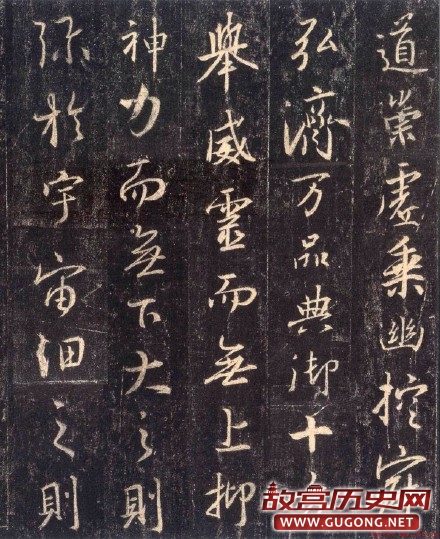 道崇虚乘幽控寂
弘濟万品典御十方
舉威靈而無上抑
神力而無下大之則
弥於宇宙細之則
故宫历史网
WWW.GUGONG.NET